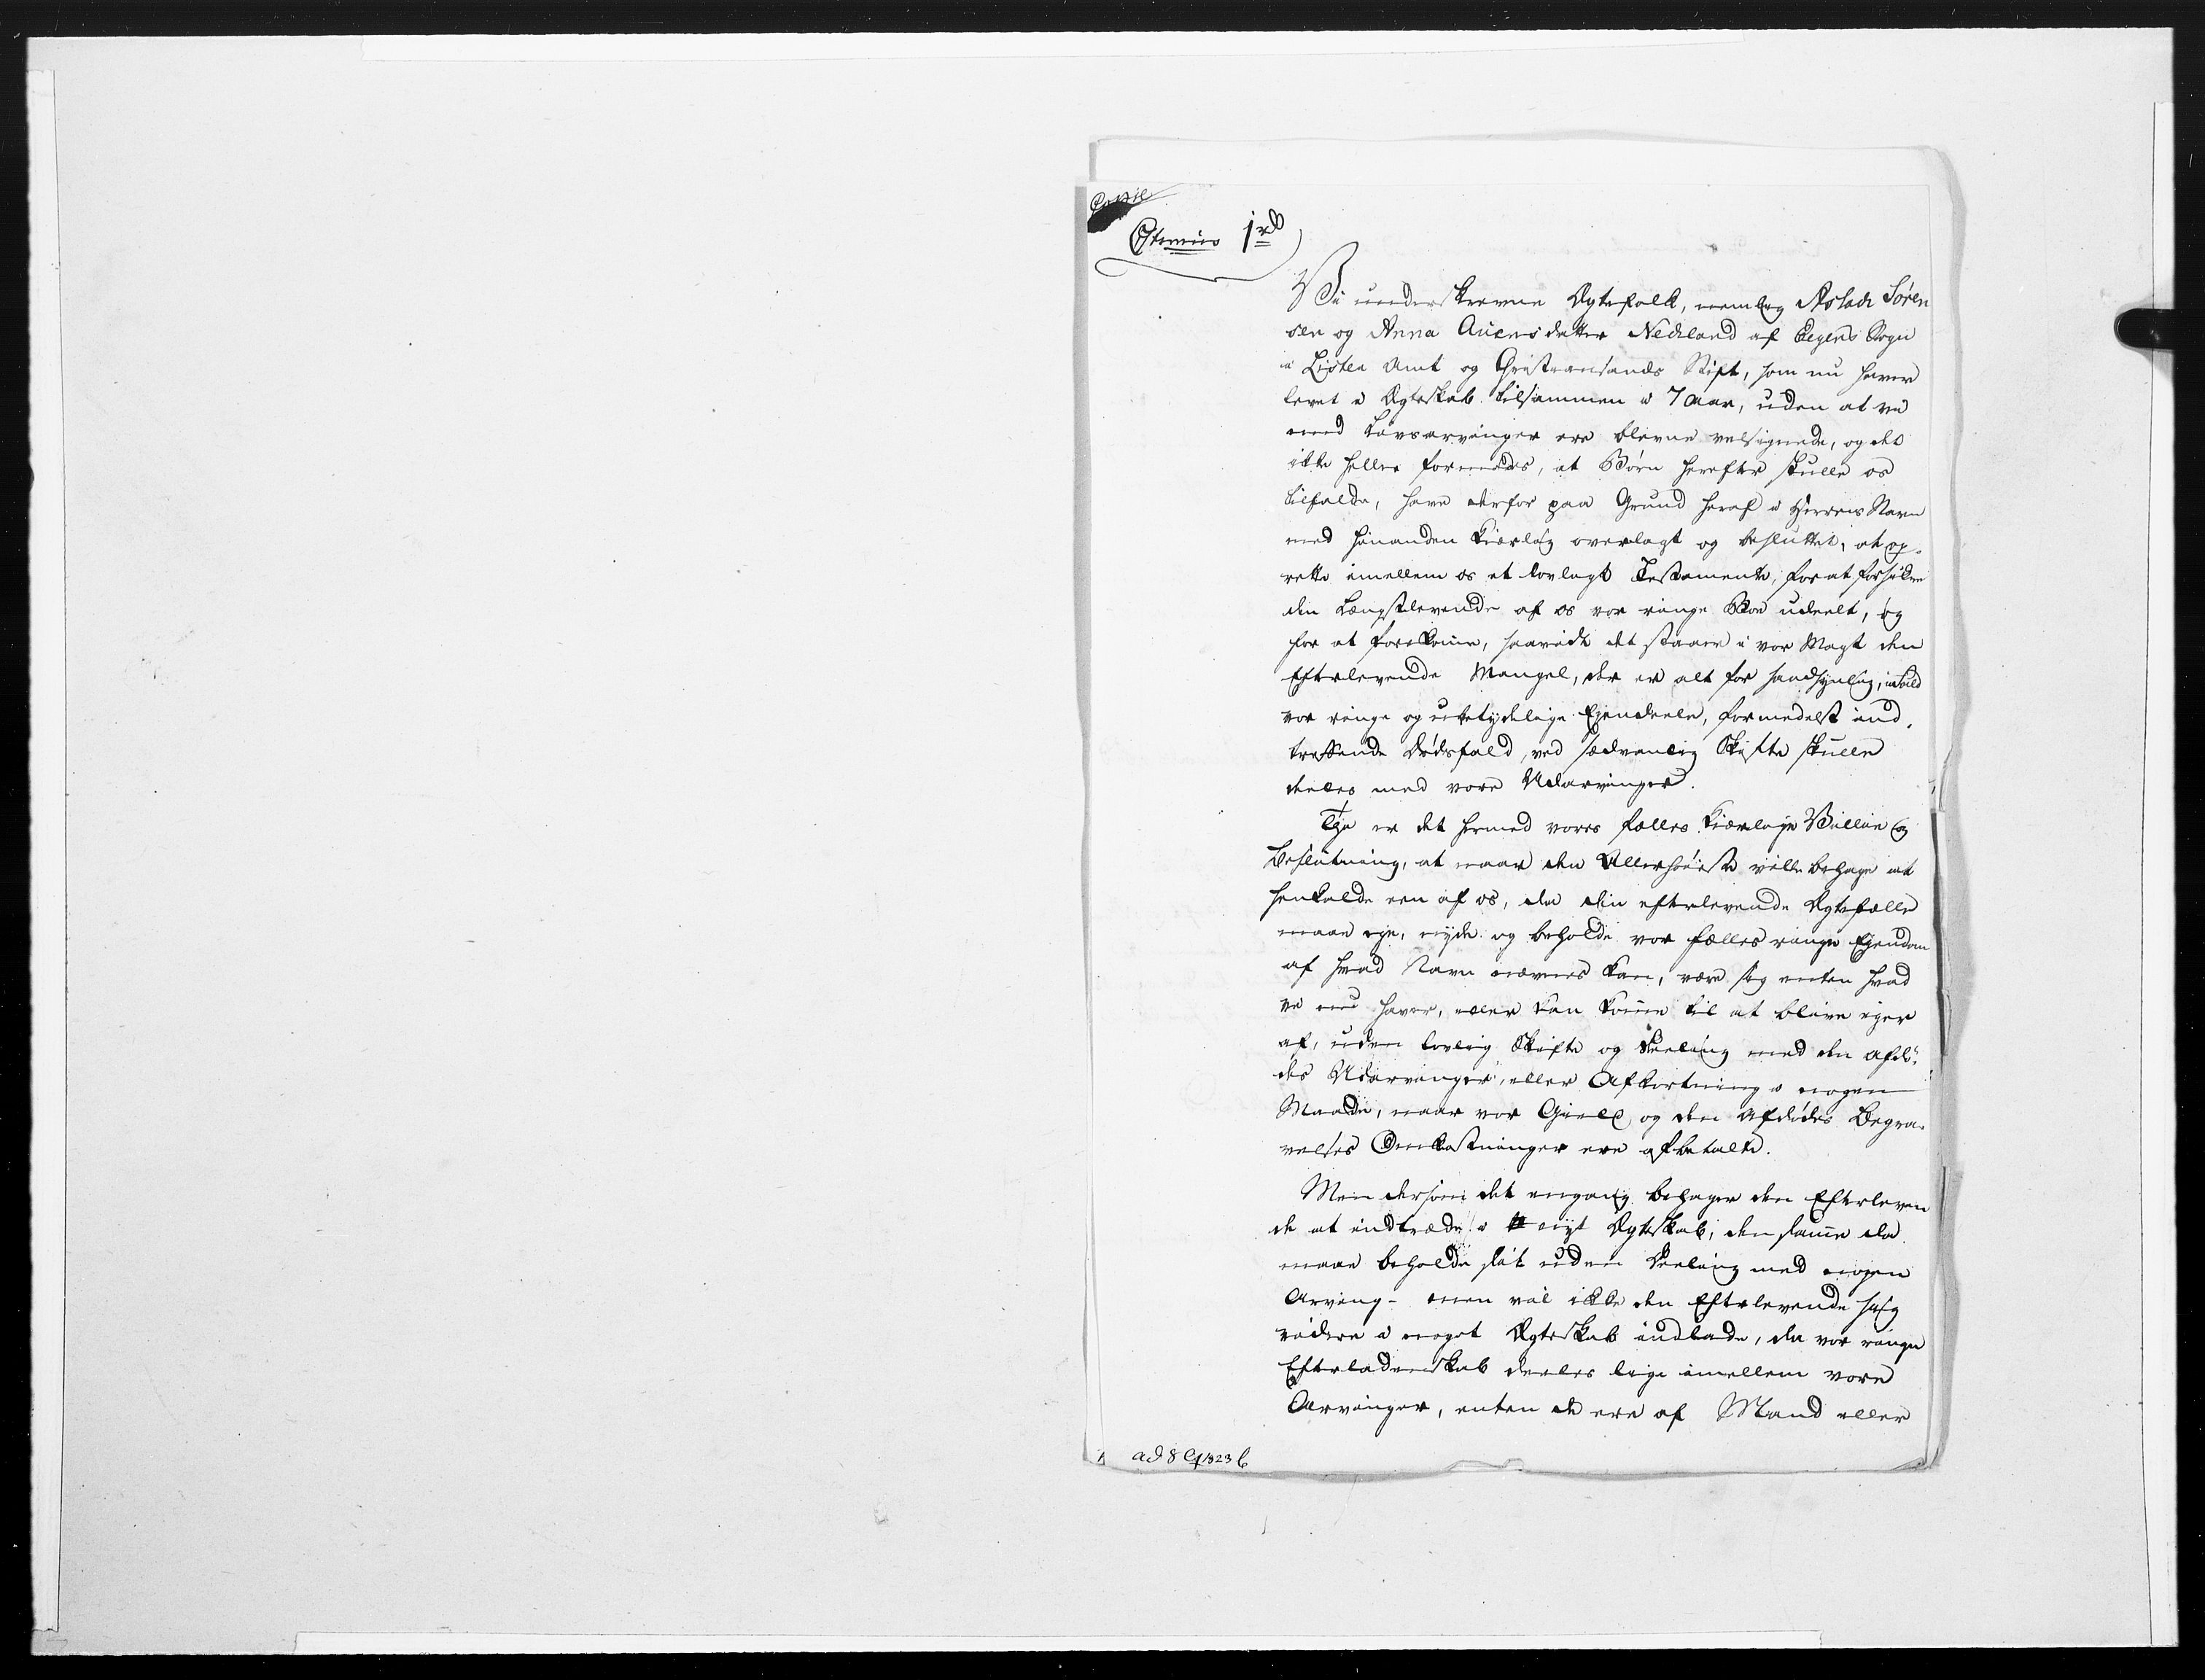 Copie
1rd
Vi underskrevne Ægtefolk, nemlig Aslach Søren
sen og Anna Auensdatter Nedland af Eegens Sogn
i Lister Amt og Christiansands Stift, som nu haver
levet i Ægteskab tilsammen i 7 Aar, uden at vi
med Livsarvinger ere blevne velsignede, og det
ikke heller formodes, at Børn herefter skulle os
tilfalde, have derfor paa Grund heraf i Herrens Navn
med hinanden kiærlig overlagt og besluttet, at op-
rette imellem os et lovlagt Testamente, for at forsikre
den Længstlevende af os vor ringe Boe udeelt, og
for at forekomme, saavidt det staaer i vor Magt den
Efterlevende Mangel, der er alt for sandsynlig, ifald
vor ringe og ubetydelige Ejendeele, formedelst ind-
treffende Dødsfald, ved sædvanlig Skifte skulle
deeles med vore Udarvinger.
Thi er det hermed vores fælles kiærlige Villie og
Beslutning, at naar den Allerhøieste ville behage at
henkalde een af os, da den efterlevende Ægtefælle
maae eje, nyde og beholde vor fælles ringe Ejendom
af hvad Navn nævnes kan, være sig enten hvad
vi nu haver, eller kan komme til at blive eger
af, uden lovlig Skifte og Deeling med den afdø-
des Udarvinger, eller Afkortning i nogen
Maade, naar vor Gield og den Afdødes Begra-
velses Omkostninger ere afbetalte.
Men dersom det engang behager den Efterleven
de at indtræde i nyt Ægteskab, den samme da
maae beholde sit uden Deeling med nogen
Arving - men vil ikke den Efterlevende sig
videre i noget Ægteskab indlade, da vor ringe
Efterladenskab deeles lige imellem vore
Arvinger, enten de ere af Mand eller